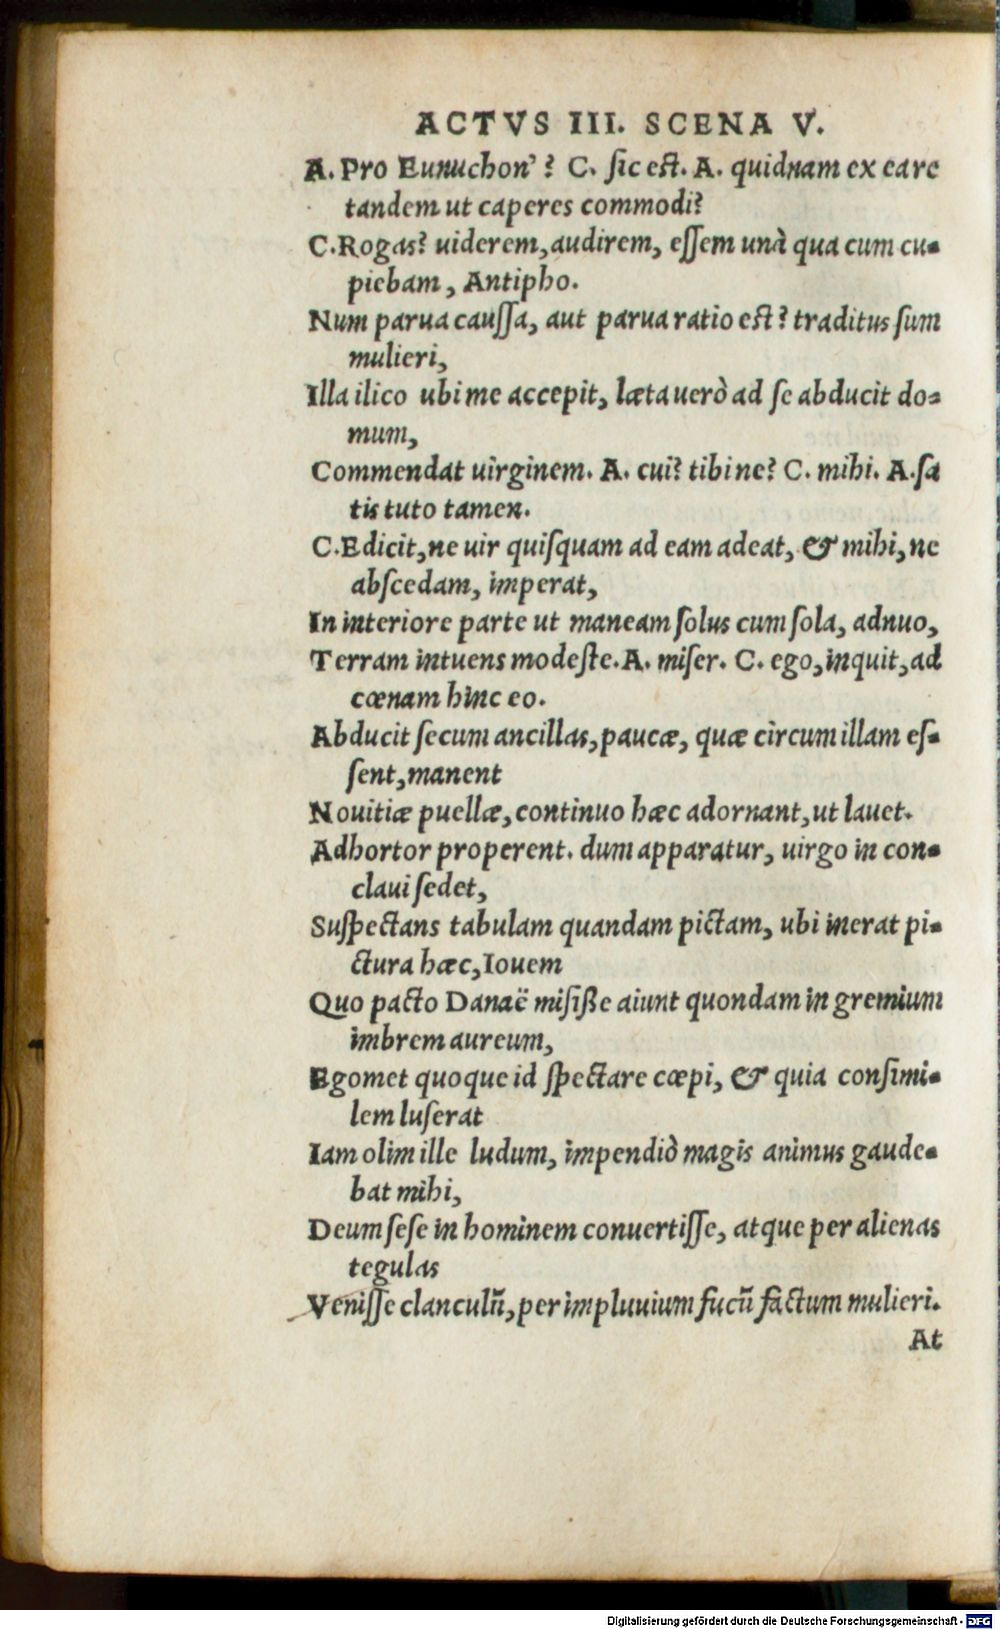 ACTVS III. SCENA V.
A. Pro Eunuchon'? C. ſic eſt. A. quidnam ex ea re
tandem ut caperes commodi?
C. Rogas? uiderem, audirem, eſſem unà qua cum cu=
piebam, Antipho.
Num parua cauſſa, aut parua ratio eſt? traditus ſum
mulieri,
Illa ilico ubi me accepit, læta uerò ad ſe abducit do=
mum,
Commendat uirginem. A. cui? tibi ne? C. mihi. A. ſa
tis tuto tamen.
C. Edicit, ne uir quiſquam ad eam adeat, & mihi, ne
abſcedam, imperat,
In interiore parte ut maneam ſolus cum ſola, adnuo,
Terram intuens modeſte. A. miſer. C. ego, inquit, ad
cœnam hinc eo.
Abducit ſecum ancillas, paucæ, quæ circum illam eſ=
ſent, manent
Nouitiæ puellæ, continuo hæc adornant, ut lauet.
Adhortor properent. dum apparatur, uirgo in con=
claui ſedet,
Suſpectans tabulam quandam pictam, ubi inerat pi=
ctura hæc, Iouem
Quo pacto Danaë miſiſſe aiunt quondam in gremium
imbrem aureum,
Egomet quoque id ſpectare cœpi, & quia conſimi=
lem luſerat
Iam olim ille ludum, impendiò magis animus gaude=
bat mihi,
Deum ſeſe in hominem conuertiſſe, atque per alienas
tegulas
Veniſſe clanculũ, per impluuium fucũ factum mulieri.
At
Digitalisierung gefördert durch die Deutsche Forschungsgemeinschaft - DFG